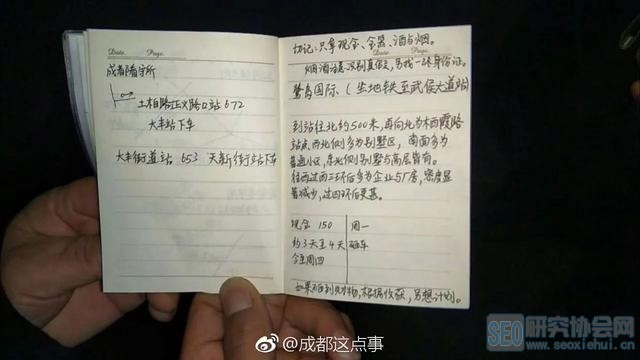 Date. Page.
成都看守所
土柏路正义路口站 672
大丰站下车
大丰街道站 653 天新街站下车
Date. Page.
切记:只拿现金、金器、酒与烟。
烟酒注意识别真假,另找一张身份证。
鹭岛国际、(坐地铁至武侯大道站)
到站往北约500米,再向北为木西霞路
站点、西北侧多为别墅区,南面多为
普通小区,东北侧别墅与高层皆有。
往西过西三环后多为企业与厂房,密度显
著减少,过四环后更甚。
现金 150 周一
约3天至4天 砸车
今至周四
如果不到财物,根据收获,另想计划。
@成都这点事
SEO研究协会网
www.seoxiehui.cn